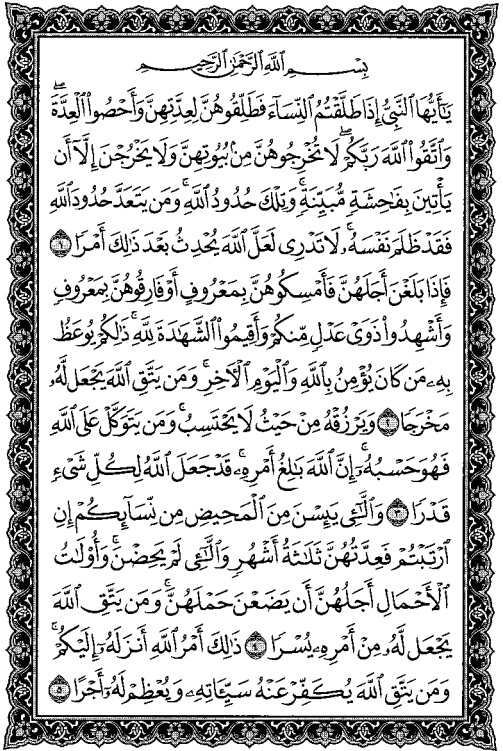 بِسْمِ اللَّهِ الرَّحْمَٰنِ الرَّحِيمِ
يَٰٓأَيُّهَا ٱلنَّبِيُّ إِذَا طَلَّقْتُمُ ٱلنِّسَآءَ فَطَلِّقُوهُنَّ لِعِدَّتِهِنَّ وَأَحْصُوا۟ ٱلْعِدَّةَۖ
وَٱتَّقُوا۟ ٱللَّهَ رَبَّكُمْۖ لَا تُخْرِجُوهُنَّ مِنۢ بُيُوتِهِنَّ وَلَا يَخْرُجْنَ إِلَّآ أَن
يَأْتِينَ بِفَٰحِشَةٍ مُّبَيِّنَةٍۚ وَتِلْكَ حُدُودُ ٱللَّهِۚ وَمَن يَتَعَدَّ حُدُودَ ٱللَّهِ
فَقَدْ ظَلَمَ نَفْسَهُۥۚ لَا تَدْرِى لَعَلَّ ٱللَّهَ يُحْدِثُ بَعْدَ ذَٰلِكَ أَمْرًا ١
فَإِذَا بَلَغْنَ أَجَلَهُنَّ فَأَمْسِكُوهُنَّ بِمَعْرُوفٍ أَوْ فَارِقُوهُنَّ بِمَعْرُوفٍ
وَأَشْهِدُوا۟ ذَوَىْ عَدْلٍ مِّنكُمْ وَأَقِيمُوا۟ ٱلشَّهَٰدَةَ لِلَّهِۚ ذَٰلِكُمْ يُوعَظُ
بِهِۦ مَن كَانَ يُؤْمِنُ بِٱللَّهِ وَٱلْيَوْمِ ٱلْـَٔاخِرِۚ وَمَن يَتَّقِ ٱللَّهَ يَجْعَل لَّهُۥ
مَخْرَجًا ٢ وَيَرْزُقْهُ مِنْ حَيْثُ لَا يَحْتَسِبُۚ وَمَن يَتَوَكَّلْ عَلَى ٱللَّهِ
فَهُوَ حَسْبُهُۥٓۚ إِنَّ ٱللَّهَ بَٰلِغُ أَمْرِهِۦۚ قَدْ جَعَلَ ٱللَّهُ لِكُلِّ شَىْءٍ
قَدْرًا ٣ وَٱلَّٰٓـِٔى يَئِسْنَ مِنَ ٱلْمَحِيضِ مِن نِّسَآئِكُمْ إِنِ
ٱرْتَبْتُمْ فَعِدَّتُهُنَّ ثَلَٰثَةُ أَشْهُرٍ وَٱلَّٰٓـِٔى لَمْ يَحِضْنَۚ وَأُو۟لَٰتُ
ٱلْأَحْمَالِ أَجَلُهُنَّ أَن يَضَعْنَ حَمْلَهُنَّۚ وَمَن يَتَّقِ ٱللَّهَ
يَجْعَل لَّهُۥ مِنْ أَمْرِهِۦ يُسْرًا ٤ ذَٰلِكَ أَمْرُ ٱللَّهِ أَنزَلَهُۥٓ إِلَيْكُمْۚ
وَمَن يَتَّقِ ٱللَّهَ يُكَفِّرْ عَنْهُ سَيِّـَٔاتِهِۦ وَيُعْظِمْ لَهُۥٓ أَجْرًا ٥